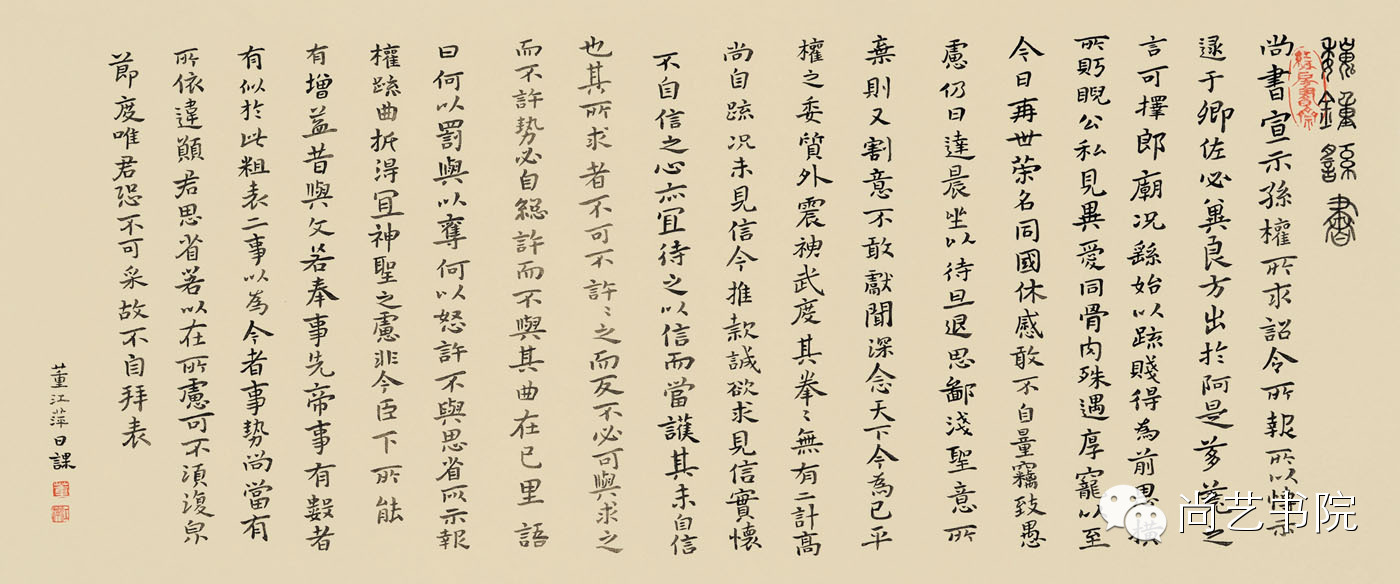 魏鍾繇書
尚書宣示孫權所求詔令所報所以博示
逯于卿佐必冀良方出於阿是芻蕘之
言可擇郎廟況繇始以疏賤得為前恩橫
所眄睨公私見異愛同骨肉殊遇厚寵以至
今日再世榮名同國休慼敢不自量竊致愚
慮仍日達晨坐以待旦退思鄙淺聖意所
棄則又割意不敢獻聞深念天下今為已平
權之委質外震神武度其拳〻無有二計高
尚自疏況未見信今推款誠欲求見信實懷
不自信之心亦宜待之以信而當護其未自信
也其所求者不可不許〻之而反不必可與求之
而不許勢必自絕許而不與其曲在已里語
曰何以罰與以奪何以怒許不與思省所示報
權疏曲折得宜神聖之慮非今臣下所能
有增益昔與文若奉事先帝事有數者
有似於此粗表二事以為今者事勢尚當有
所依違願君思省若以在所慮可不須復皃
節度唯君恐不可采故不自拜表
董江萍日課
尚艺书院